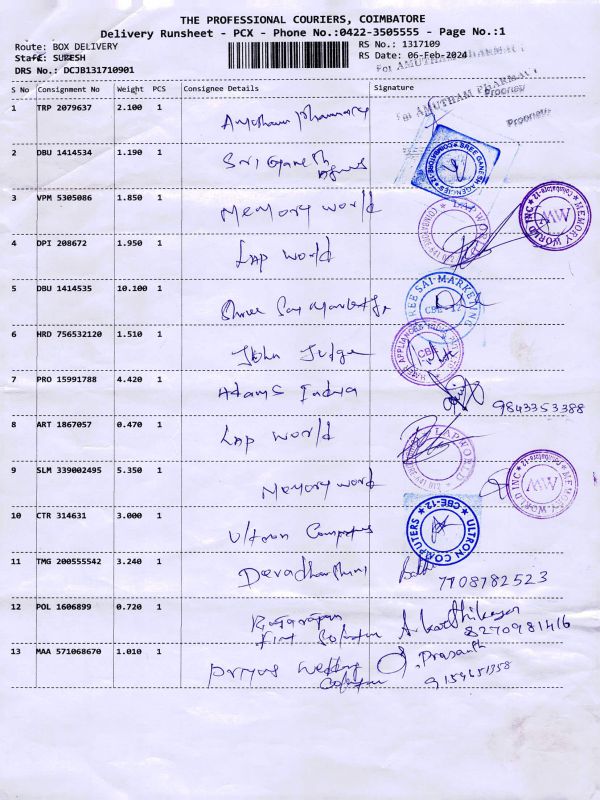 THE PROFESSIONAL COURIERS, COIMBATORE
Delivery Runsheet - PCX - Phone No.:0422-3505555 - Page No.:1
Route: BOX DELIVERY RS No.: 1317109
Staff: SURESH RS Date: 06-Feb-2024
DRS No.: DCJB131710901
For AMUTHAM PHARMACY
S No Consignment No Weight PCS Consignee Details Signature
For AMUTHAM PHARMACY
1 TRP 2079637 2.100 1 Amutham Pharmacy
2 DBU 1414534 1.190 1 Sri Ganesh
SREE GANESH AGENCIES COIMBATORE-12
3 VPM 5305086 1.850 1 Memory world
LAP WORLD
MEMORY WORLD INC Coimbatore-12 MW
4 DPI 208672 1.950 1 Lap world
5 DBU 1414535 10.100 1 Shree Sai Marketing
SHREE SAI MARKETING CBE-12
6 HRD 756532120 1.510 1 John
APPLIANCES CBE
7 PRO 15991788 4.420 1 Adams India 9843353388
8 ART 1867057 0.470 1 Lap world
LAP WORLD
9 SLM 339002495 5.350 1 Memory world
MEMORY WORLD INC Coimbatore-12 MW
10 CTR 314631 3.000 1 Ultron Computers
ULTRON COMPUTERS CBE-12
11 TMG 200555542 3.240 1 Devadharshini 7708782523
12 POL 1606899 0.720 1 A. Karthikeyan
8270981416
13 MAA 571068670 1.010 1 Priyas Wedding Prasanth
9154651358